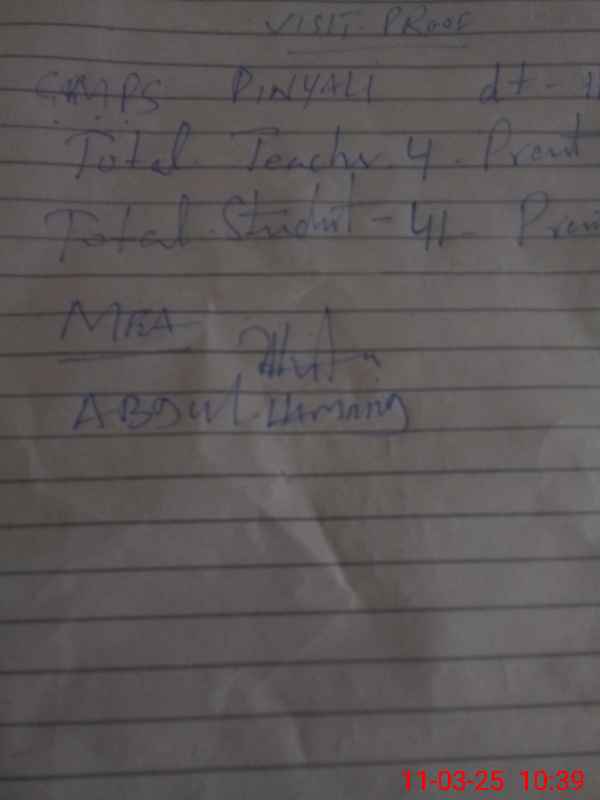 VISIT PROOF
GMPS PINYALI dt - 11
Total Teacher 4 - Presnt
Total Student - 41 - Presn
MEA
ABDUL
11-03-25 10:39